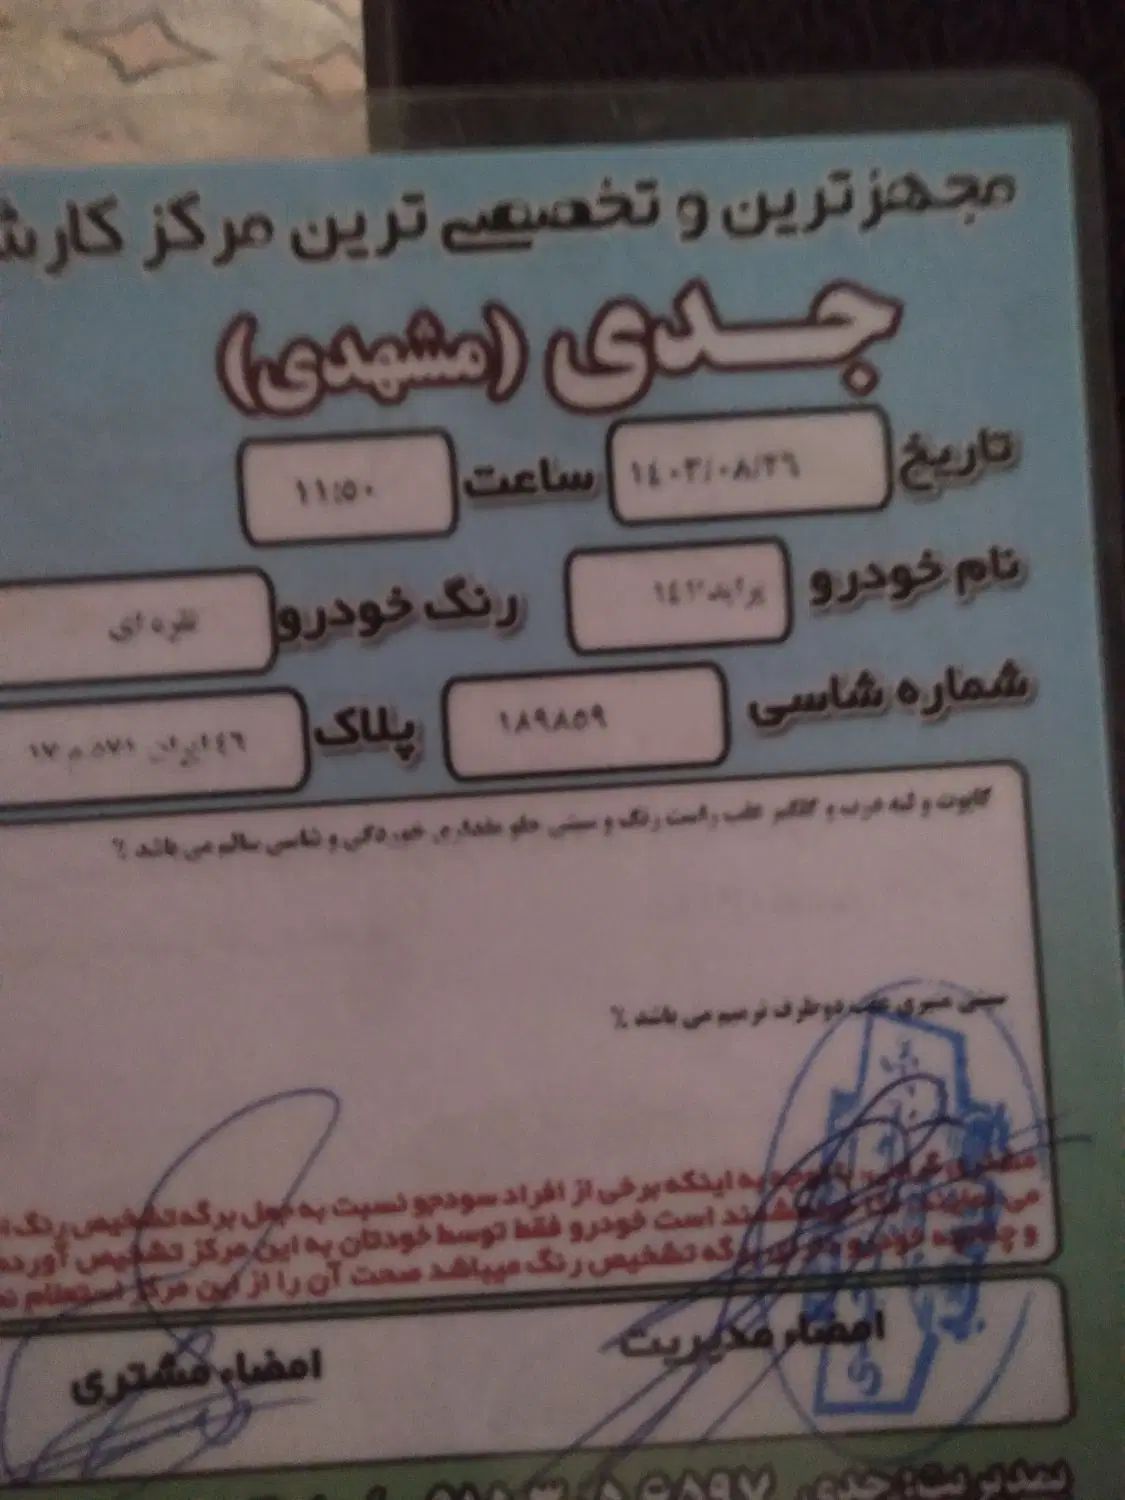 مجهز ترین و تخصصی ترین مرکز کارش
جدی (مشهدی)
تاریخ ۱۴۰۳/۰۸/۲۶ ساعت ۱۱:۵۰
نام خودرو پراید ۱۴۲ رنگ خودرو نقره ای
شماره شاسی ۱۸۹۸۵۹ پلاک ۴۶ ایران ۵۷۱ ۱۷
کاپوت و لبه درب و گلگیر عقب راست رنگ و سینی جلو مقداری خوردگی و شاسی سالم می باشد ٪
سینی عقب دو طرف ترمیم می باشد ٪
به اینکه برخی از افراد سودجو نسبت به جعل برگه تشخیص رنگ
می است خودرو فقط توسط خودتان به این مرکز تشخیص آورده
و چنانچه خودرو برگه تشخیص رنگ میباشد صحت آن را از این مرکز استعلام
امضاء مدیریت امضاء مشتری
مدیریت: جدی